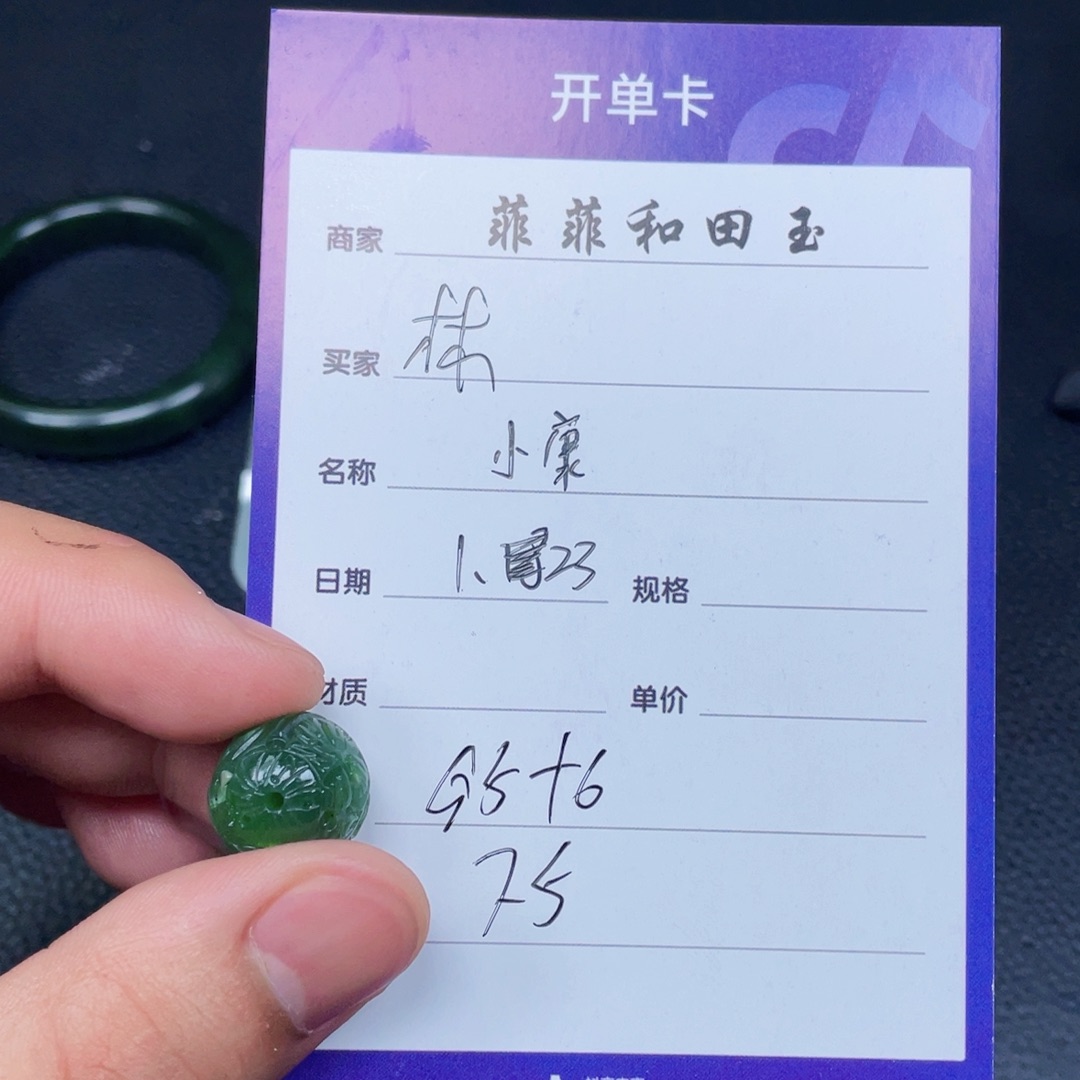 开单卡
商家 菲菲和田玉
买家 林
名称 小康
日期 1、23 规格
材质 单价
95+6
75